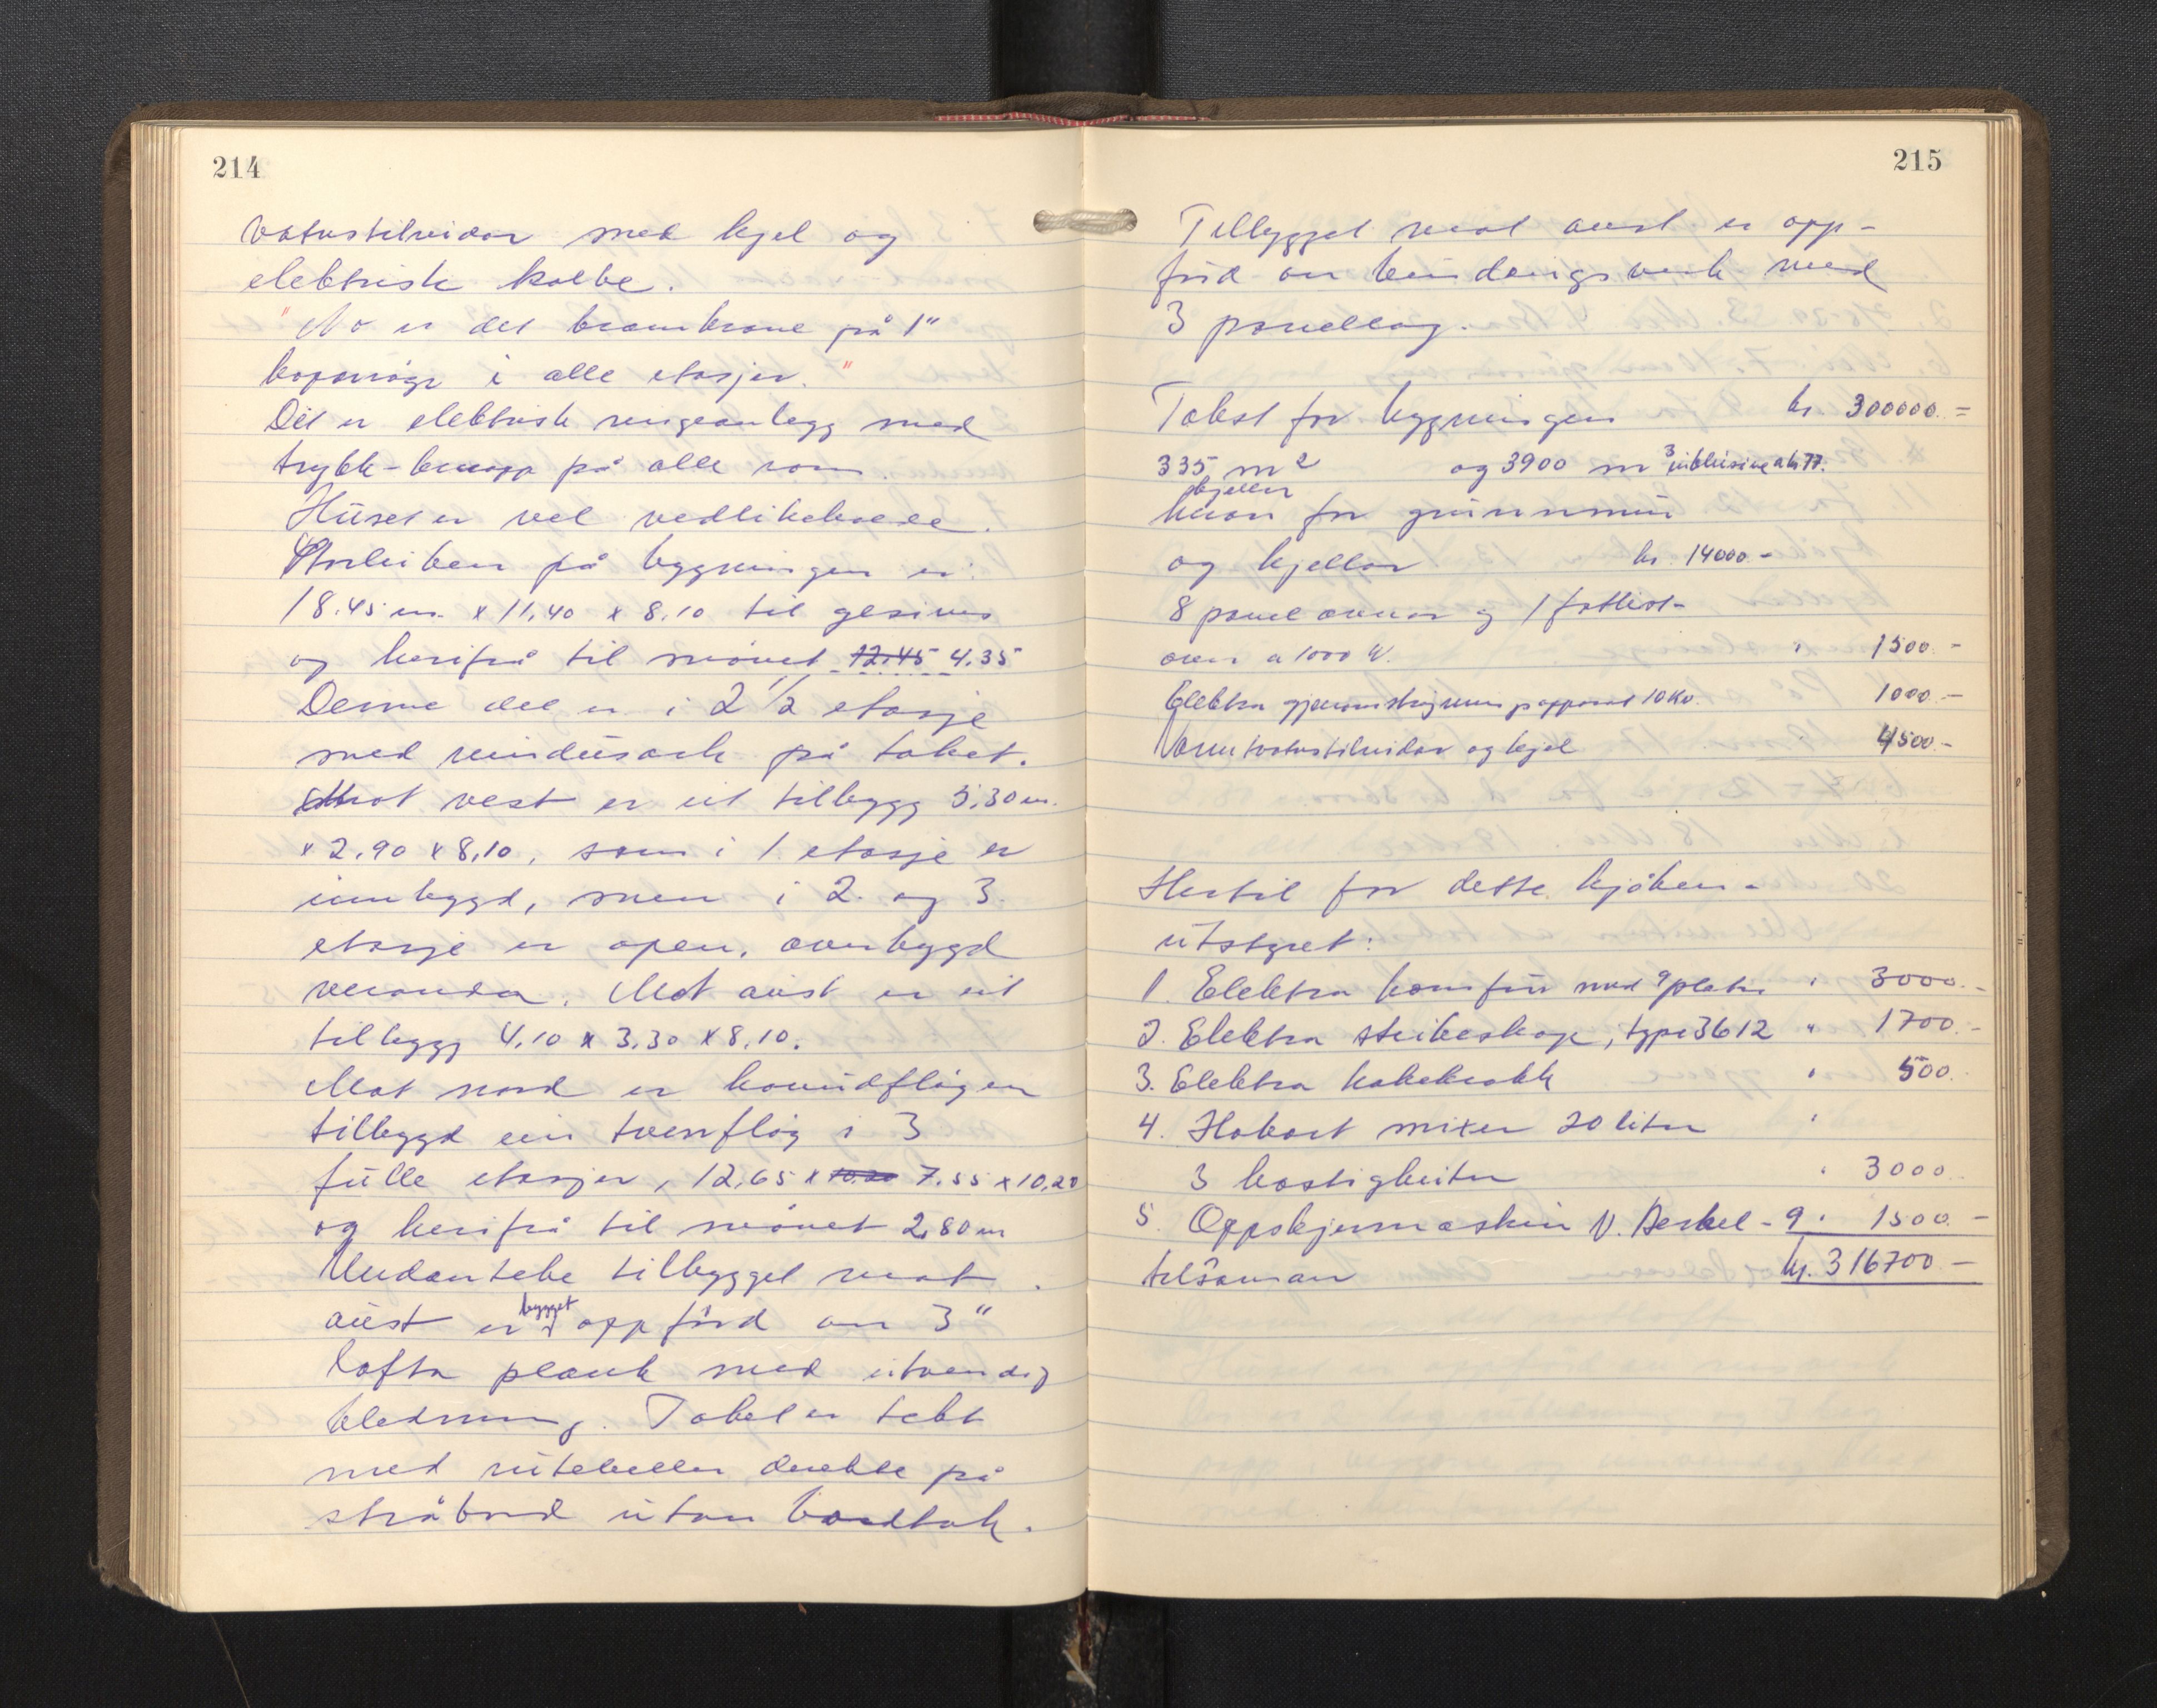 214
vatnstilreidar med kjel og
elektrisk kolbe.
"No er det brannkrane på 1"
koparrøyr i alle etasjer."
Det er elektrisk ringeanlegg med
trykk-knapp på alle rom.
Huset er vel vedlikehalde.
Storleiken på bygningen er:
18.45 m. x 11,40 x 8,10 til gesims
og herifrå til mønet 12.45 4.35
Denne del er i 2 1/2 etasje
med vindusark på taket.
Mot vest er eit tilbygg 5,30 m.
x 2,90 x 8,10, som i 1. etasje er
innbygd, men i 2. og 3.
etasje er open, overbygd
veranda. Mot aust er eit
tilbygg 4,10 x 3,30 x 8,10.
Mot nord er hovudfløyen
tilbygd ein tverrfløy i 3
fulle etasjer, 12,65 x 10.20 7.55 x 10,20
og herifrå til mønet 2,80 m
Undanteke tilbygget mot
aust er bygget oppførd av 3"
lafta plank med utvendig
kledning. Taket er tekt
med ruteheller direkte på
stråbord utan bordtak.
215
Tilbygget mot aust er opp-
førd av bindingsverk med
3 panellag.
Takst for bygningen kr. 300000.=
335 m2 og 3900 m3 inklusive ark 77.
kjeller
herav for grunnmur
og kjellar kr. 14000.-
8 panelovnar og 1 flattist-
ovn a 1000 W. " 1500.-
Elektra gjennomstrøymingsapparat 10 Kv. 1000.-
Varmtvatnstilreidar og kjel " 4500.-
Hertil for dette kjøken-
utstyret:
1. Elektra komfur med 9 plater " 3000.-
2. Elektra steikeskap, type 3612 " 1700.-
3. Elektra kokekrakk " 500.
4. Hobart mixer 20 liter "
3 hastigheiter " 3000
5. Oppskjermaskin V. Berkel - 9 " 1500.-
tilsaman kr. 316700.-